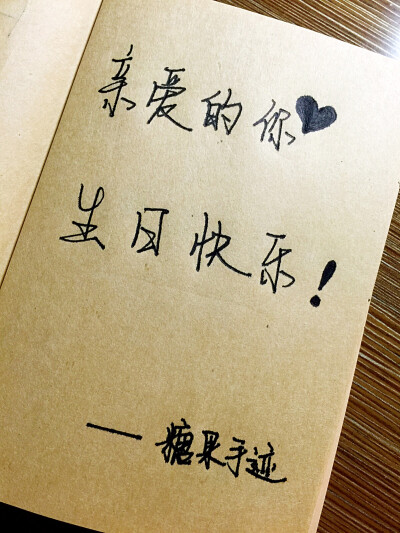 亲爱的你♥
生日快乐！
——糖果手迹